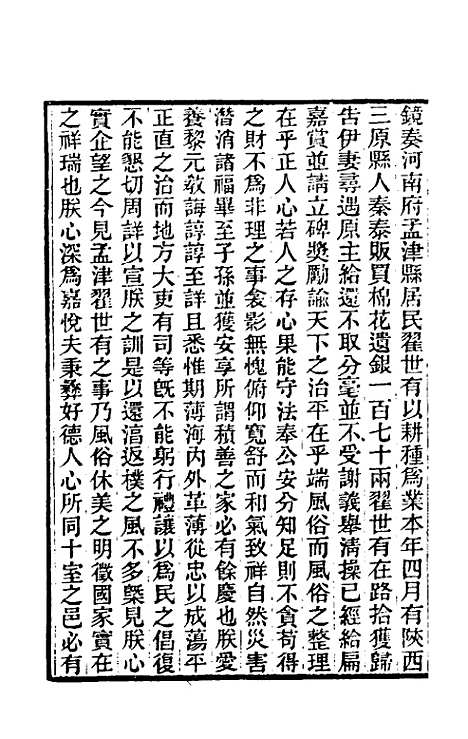 鏡奏河南府孟津縣居民翟世有以耕種爲業本年四月有陝西
三原縣人秦泰販買棉花遺銀一百七十兩翟世有在路拾獲歸
告伊妻尋遇原主給還不取分毫並不受謝義舉淸操已經給扁
嘉賞並請立碑獎勵諭天下之治平在乎端風俗而風俗之整理
在乎正人心若人之存心果能守法奉公安分知足則不貪苟得
之財不爲非理之事衾影無愧俯仰寬舒而和氣致祥自然災害
潛消諸福畢至子孫並獲安享所謂積善之家必有餘慶也朕愛
養黎元敎誨諄諄至詳且悉惟期薄海內外革薄從忠以成蕩平
正直之治而地方大吏有司等旣不能躬行禮讓以爲民之倡復
不能懇切周詳以宣朕之訓是以還淳返樸之風不多槩見朕心
實企望之今見孟津翟世有之事乃風俗休美之明徵國家實在
之祥瑞也朕心深爲嘉悅夫秉彝好德人心所同十室之邑必有